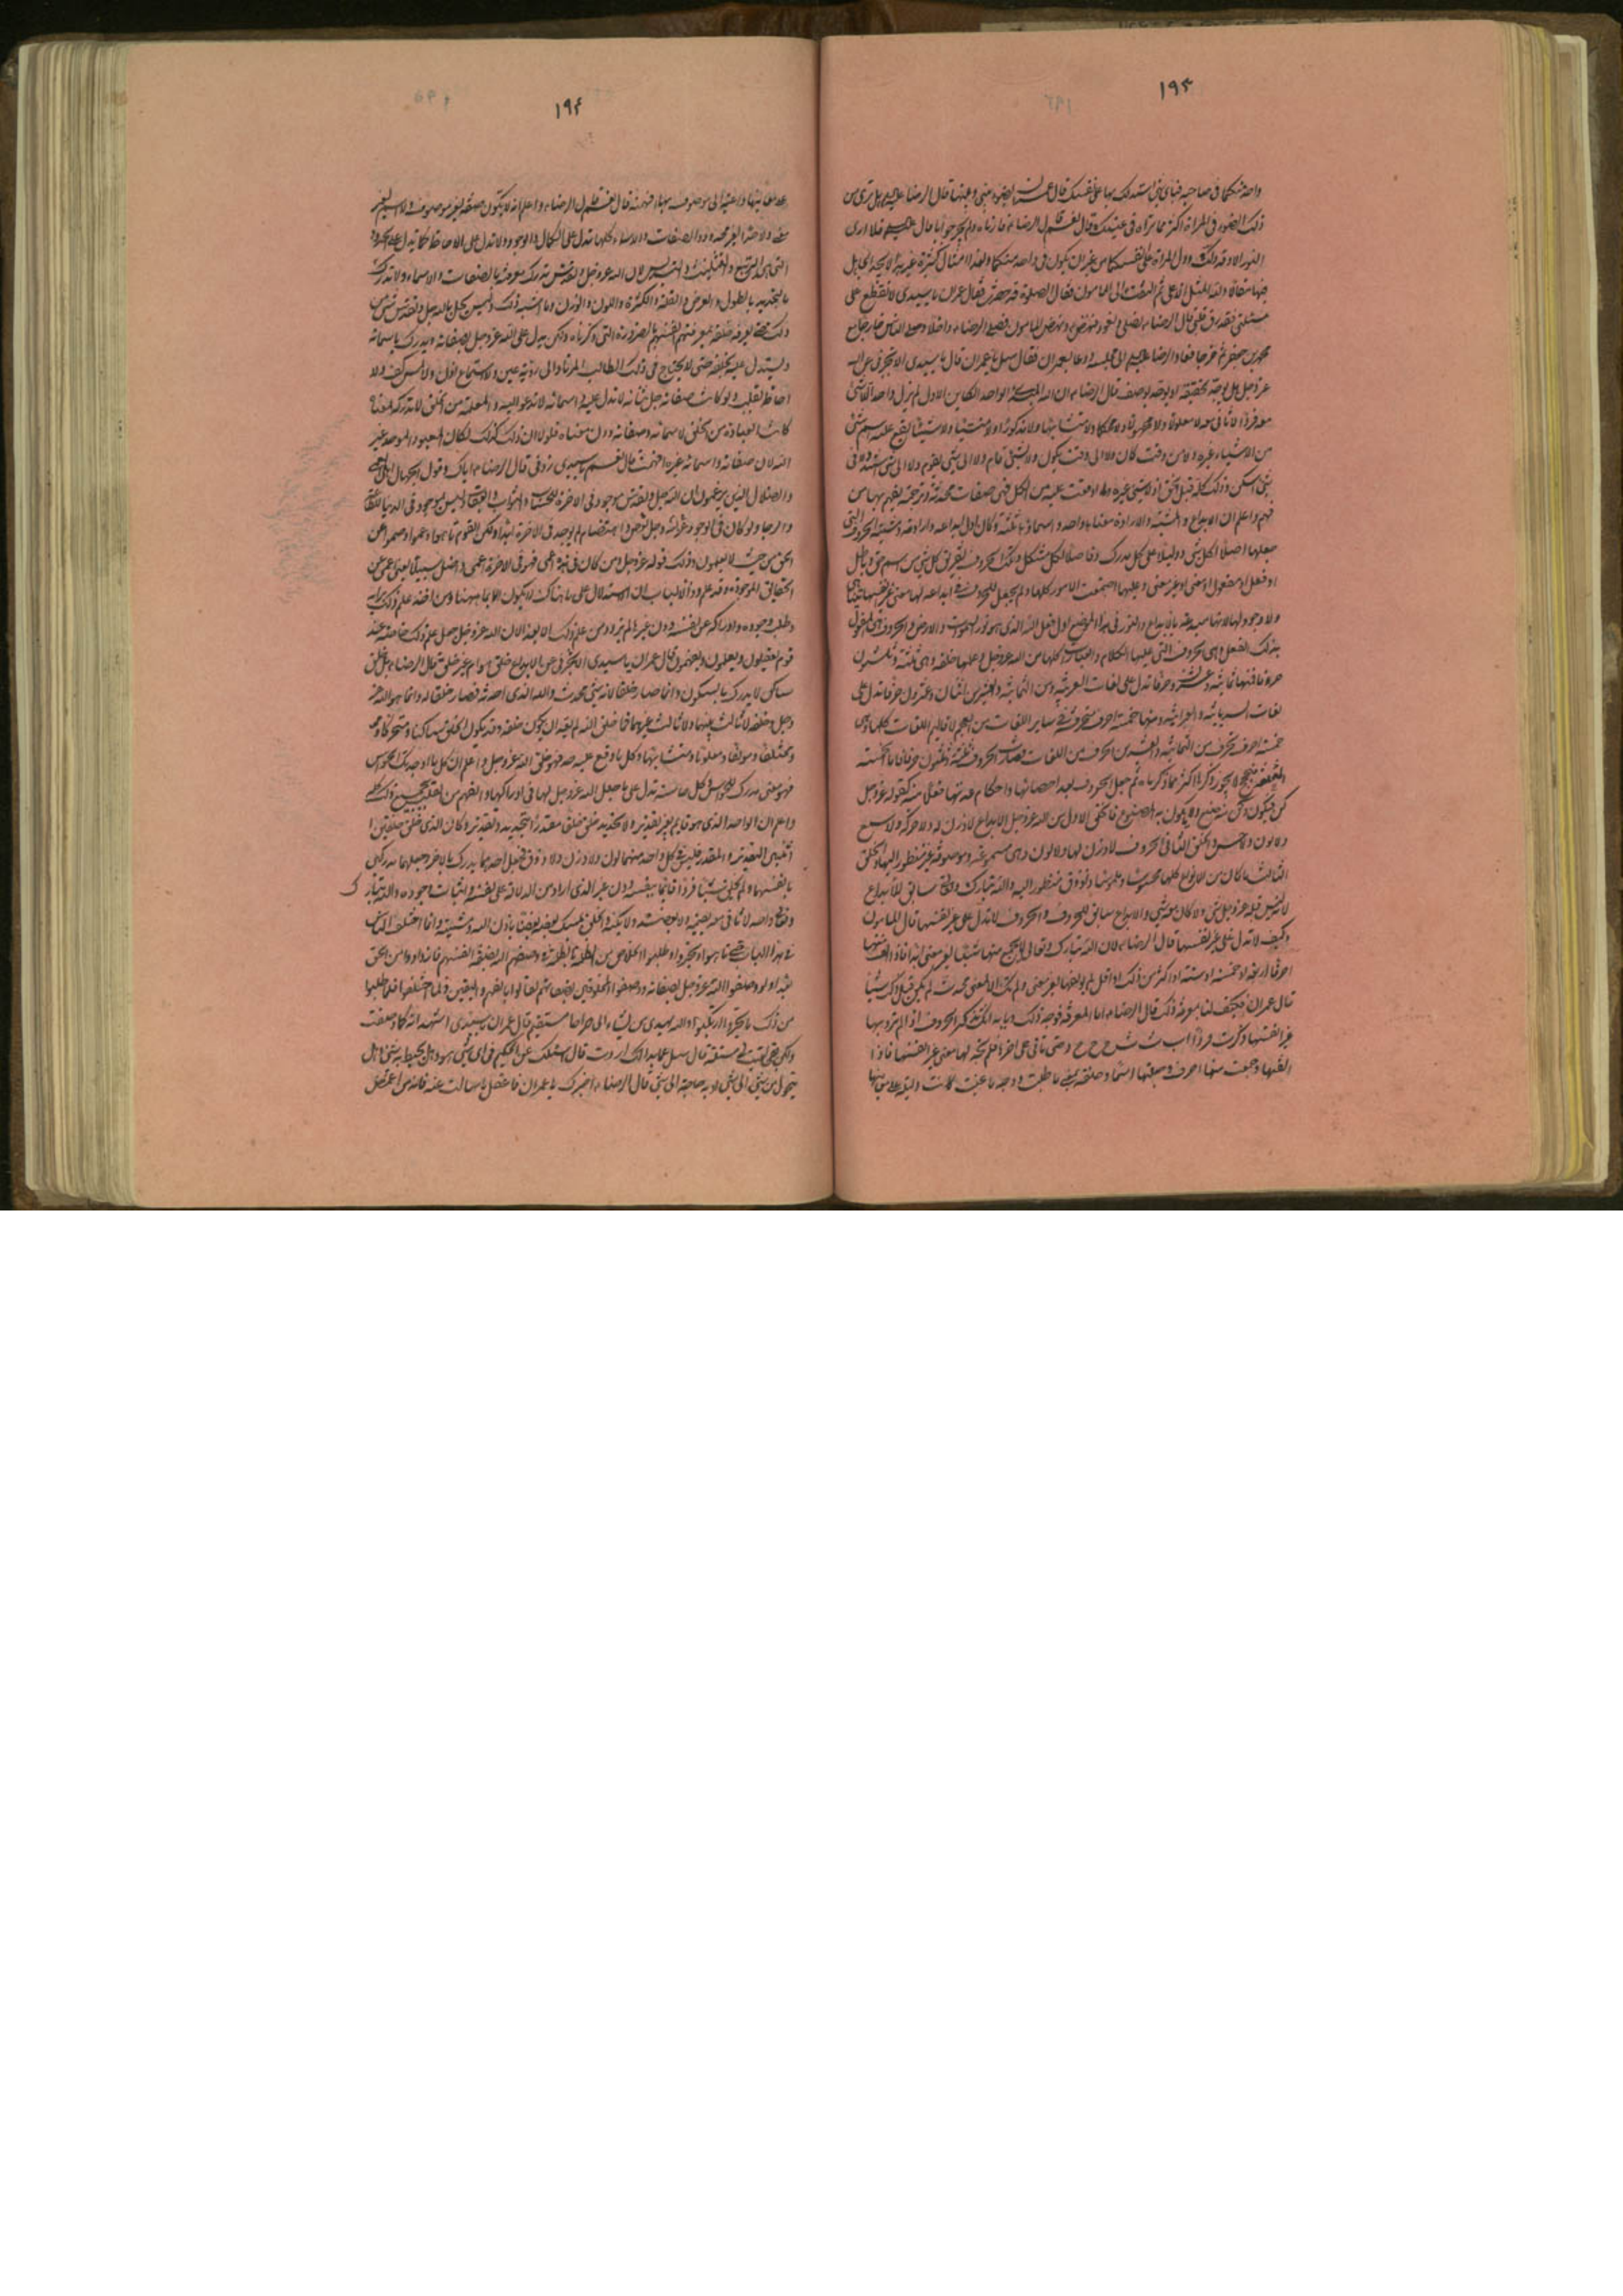 ١٩٣
واحد منكما فى صاحبه فباى شئ استدللت بها على نفسك قال عمران بضوء بينى وبينها قال الرضا عليه هل ترى من
ذلك الضوء فى المراة اكثر مما تراه فى عينك قال نعم قال الرضا ء فارناه فلم يحر جوابا قال فلا ارى
النور الا وقد دلك ودل المراة على انفسكما من غير ان يكون فى واحد منكما ولهذا امثال كثيرة غير هذا لا يجد الجاهل
فيها مقالا ولله المثل الاعلى ثم التفت الى المامون فقال الصلوة قد حضرت فقال عمران يا سيدى لا تقطع على
مسئلتى فقد رق قلبى قال الرضا ء نصلى ونعود فنهض ونهض المامون فصلى الرضا ء داخلا وصلى الناس خارجا خلف
محمد بن جعفر ثم خرجا فعاد الرضا الى مجلسه ودعا بعمران فقال سل يا عمران قال يا سيدى الا تخبرنى عن الله
عز وجل هل يوحد بحقيقة او يوحد بوصف قال الرضا ء ان الله الواحد الكاين الاول لم يزل واحدا لا شئ
معه فردا لا ثانى معه لا معلوما ولا مجهولا ولا محكما ولا متشابها ولا مذكورا ولا منسيا ولا شيئا يقع عليه اسم شئ
من الاشياء غيره ولا من وقت كان ولا الى وقت يكون ولا بشئ قام ولا الى شئ يقوم ولا الى شئ استند ولا فى
شئ استكن وذلك كله قبل الخلق اذ لا شئ غيره وما اوقعت عليه من الكل فهى صفات محدثة وترجمة يفهم بها من
فهم واعلم ان الابداع والمشية والارادة معناها واحد واسماؤها ثلثة وكان اول ابداعه وارادته ومشيته الحروف التى
جعلها اصلا لكل شئ ودليلا على كل مدرك وفاصلا لكل مشكل وبتلك الحروف تفريق كل شئ من اسم حق وباطل
او فعل او مفعول او معنى او غير معنى وعليها اجتمعت الامور كلها ولم يجعل للحروف فى ابداعه لها معنى غير انفسها
ولا وجود لها لانها مبدعة بالابداع والنور فى هذا الموضع اول فعل الله الذى هو نور السموت والارض والحروف هى المفعول
بذلك الفعل وهى الحروف التى عليها الكلام والعبارات كلها من الله عز وجل علمها خلقه وهى ثلثة وثلثون
حرفا فمنها ثمانية وعشرون حرفا تدل على لغات العربية ومن الثمانية والعشرين اثنان وعشرون حرفا تدل على
لغات السريانية والعبرانية ومنها خمسة احرف متحرفة فى ساير اللغات من العجم لاقاليم اللغات كلها وهى
خمسة احرف تحرفت من الثمانية والعشرين الحرف من اللغات فصارت الحروف ثلثة وثلثون حرفا فاما الخمسة
لا يجوز ذكرها اكثر مما ذكرناه ثم جعل الحروف بعد احصائها واحكام عدتها فعلا منه كقوله عز وجل
كن فيكون وكن منه صنع وما يكون به المصنوع فالخلق الاول من الله عز وجل الابداع لا وزن له ولا حركة ولا سمع
ولا لون ولا حس والخلق الثانى الحروف لا وزن لها ولا لون وهى مسموعة موصوفة غير منظور اليها والخلق
الثالث ما كان من الانواع كلها محسوسا ملموسا ذا ذوق منظور اليه والله تبارك وتعالى سابق للابداع
لانه ليس قبله عز وجل شئ ولا كان معه شئ والابداع سابق للحروف والحروف لا تدل على غير نفسها قال المامون
وكيف لا تدل على غير نفسها قال الرضا ء لان الله تبارك وتعالى لا يجمع منها شيئا لغير معنى ابدا فاذا الف منها
احرفا اربعة او خمسة او ستة او اكثر من ذلك او اقل لم يولفها لغير معنى ولم يك الا لمعنى محدث لم يكن قبل ذلك شيئا
قال عمران فكيف لنا بمعرفة ذلك قال الرضا ء اما المعرفة فوجه ذلك وبابه انك تذكر الحروف اذا لم ترد بها
غير انفسها ذكرت فردا ا ب ت ث ج ح خ حتى تاتى على اخرها فلم تجد لها معنى غير انفسها فاذا
الفتها وجمعت منها احرف وجعلتها اسما وصفة لمعنى ما طلبت ووجه ما عنيت كانت دليلة على معانيها
١٩٤
على معانيها داعية الى الموصوف بها افهمته قال نعم قال الرضا ء واعلم انه لا يكون صفة لغير موصوف ولا اسم لغير
معنى ولا حد لغير محدود والصفات والاسماء كلها تدل على الكمال والوجود ولا تدل على الاحاطة كما تدل على الحدود
التى هى التربيع والتثليث والتسديس لان الله عز وجل وتقدس تدرك معرفته بالصفات والاسماء ولا تدرك
بالتحديد بالطول والعرض والقلة والكثرة واللون والوزن وما اشبه ذلك وليس يحل بالله جل وتقدس شئ من
ذلك حتى يعرفه خلقه بمعرفتهم انفسهم بالضرورة التى ذكرناه ولكن يدل على الله عز وجل بصفاته ويدرك باسمائه
ويستدل عليه بخلقه حتى لا يحتاج فى ذلك الطالب المرتاد الى رؤية عين ولا استماع اذن ولا لمس كف ولا
احاطة بقلب ولو كانت صفاته جل ثنائه لا تدل عليه واسمائه لا تدعو اليه والمعلمة من الخلق لا تدركه لمعناه
كانت العبادة من الخلق لاسمائه وصفاته دون معناه فلولا ان ذلك كذلك لكان المعبود الموحد غير
الله لان صفاته واسمائه غيره افهمت قال نعم يا سيدى زدنى قال الرضا ء اياك وقول الجهال اهل العمى
والضلال الذين يزعمون ان الله جل وتقدس موجود فى الاخرة للحساب والثواب والعقاب وليس بموجود فى الدنيا للطاعة
والرجاء ولو كان فى الوجود لله عز وجل نقص واهتضام لم يوجد فى الاخرة ابدا ولكن القوم تاهوا وعموا وصموا عن
الحق من حيث لا يعلمون وذلك قوله عز وجل ومن كان فى هذه اعمى فهو فى الاخرة اعمى واضل سبيلا يعنى اعمى عن
الحقايق الموجودة وقد علم ذووا الالباب ان الاستدلال على ما هناك لا يكون الا بما ههنا ومن اخذ علم ذلك برايه
وطلب وجوده وادراكه عن نفسه دون غيرها لم يزدد من علم ذلك الا بعدا لان الله عز وجل جعل علم ذلك خاصة عند
قوم يعقلون ويعلمون ويفهمون قال عمران يا سيدى الا تخبرنى عن الابداع خلق هو ام غير خلق قال الرضا ء بل خلق
ساكن لا يدرك بالسكون وانما صار خلقا لانه شئ محدث والله الذى احدثه فصار خلقا له وانما هو الله عز
وجل وخلقه لا ثالث بينهما ولا ثالث غيرهما فما خلق الله لم يعد ان يكون خلقه وقد يكون الخلق ساكنا ومتحركا
ومختلفا ومؤتلفا ومعلوما ومتشابها وكل ما وقع عليه حد فهو خلق الله عز وجل واعلم ان كل ما اوجدتك الحواس
فهو معنى مدرك للحواس وكل حاسة تدل على ما جعل الله عز وجل لها فى ادراكها والفهم من القلب بجميع ذلك كله
واعلم ان الواحد الذى هو قايم بغير تقدير ولا تحديد خلق خلقا مقدرا بتحديد وتقدير وكان الذى خلق خلقين ا
ثنين التقدير والمقدر وليس فى كل واحد منهما لون ولا وزن ولا ذوق فجعل احدهما يدرك بالاخر وجعلهما مدركين
بانفسهما ولم يخلق شيئا فردا قائما بنفسه دون غيره للذى اراد من الدلالة على نفسه واثبات وجوده فالله تبار ك
وتعالى واحد لا ثانى معه يقيمه ولا يعضده ولا يكنه والخلق يمسك بعضه بعضا باذن الله ومشيته وانما اختلف الناس
فى هذا الباب حتى تاهوا وتحيروا وطلبوا الخلاص من الظلمة بالظلمة فى وصفهم الله بصفة انفسهم فازدادوا من الحق
بعدا ولو وصفوا الله عز وجل بصفاته ووصفوا المخلوقين بصفاتهم لقالوا بالفهم واليقين ولما اختلفوا فلما طلبوا
من ذلك ما تحيروا ارتبكوا والله يهدى من يشاء الى صراط مستقيم قال عمران يا سيدى اشهد انه كما وصفت
ولكن بقيت لى مسئلة قال سل عما بدا لك اردت قال اسئلك عن الحكيم فى اى شئ هو وهل يحيط به شئ وهل
يتحول من شئ الى شئ او به حاجة الى شئ قال الرضا ء اخبرك يا عمران فاعقل ما سالت عنه فانه من اغمض